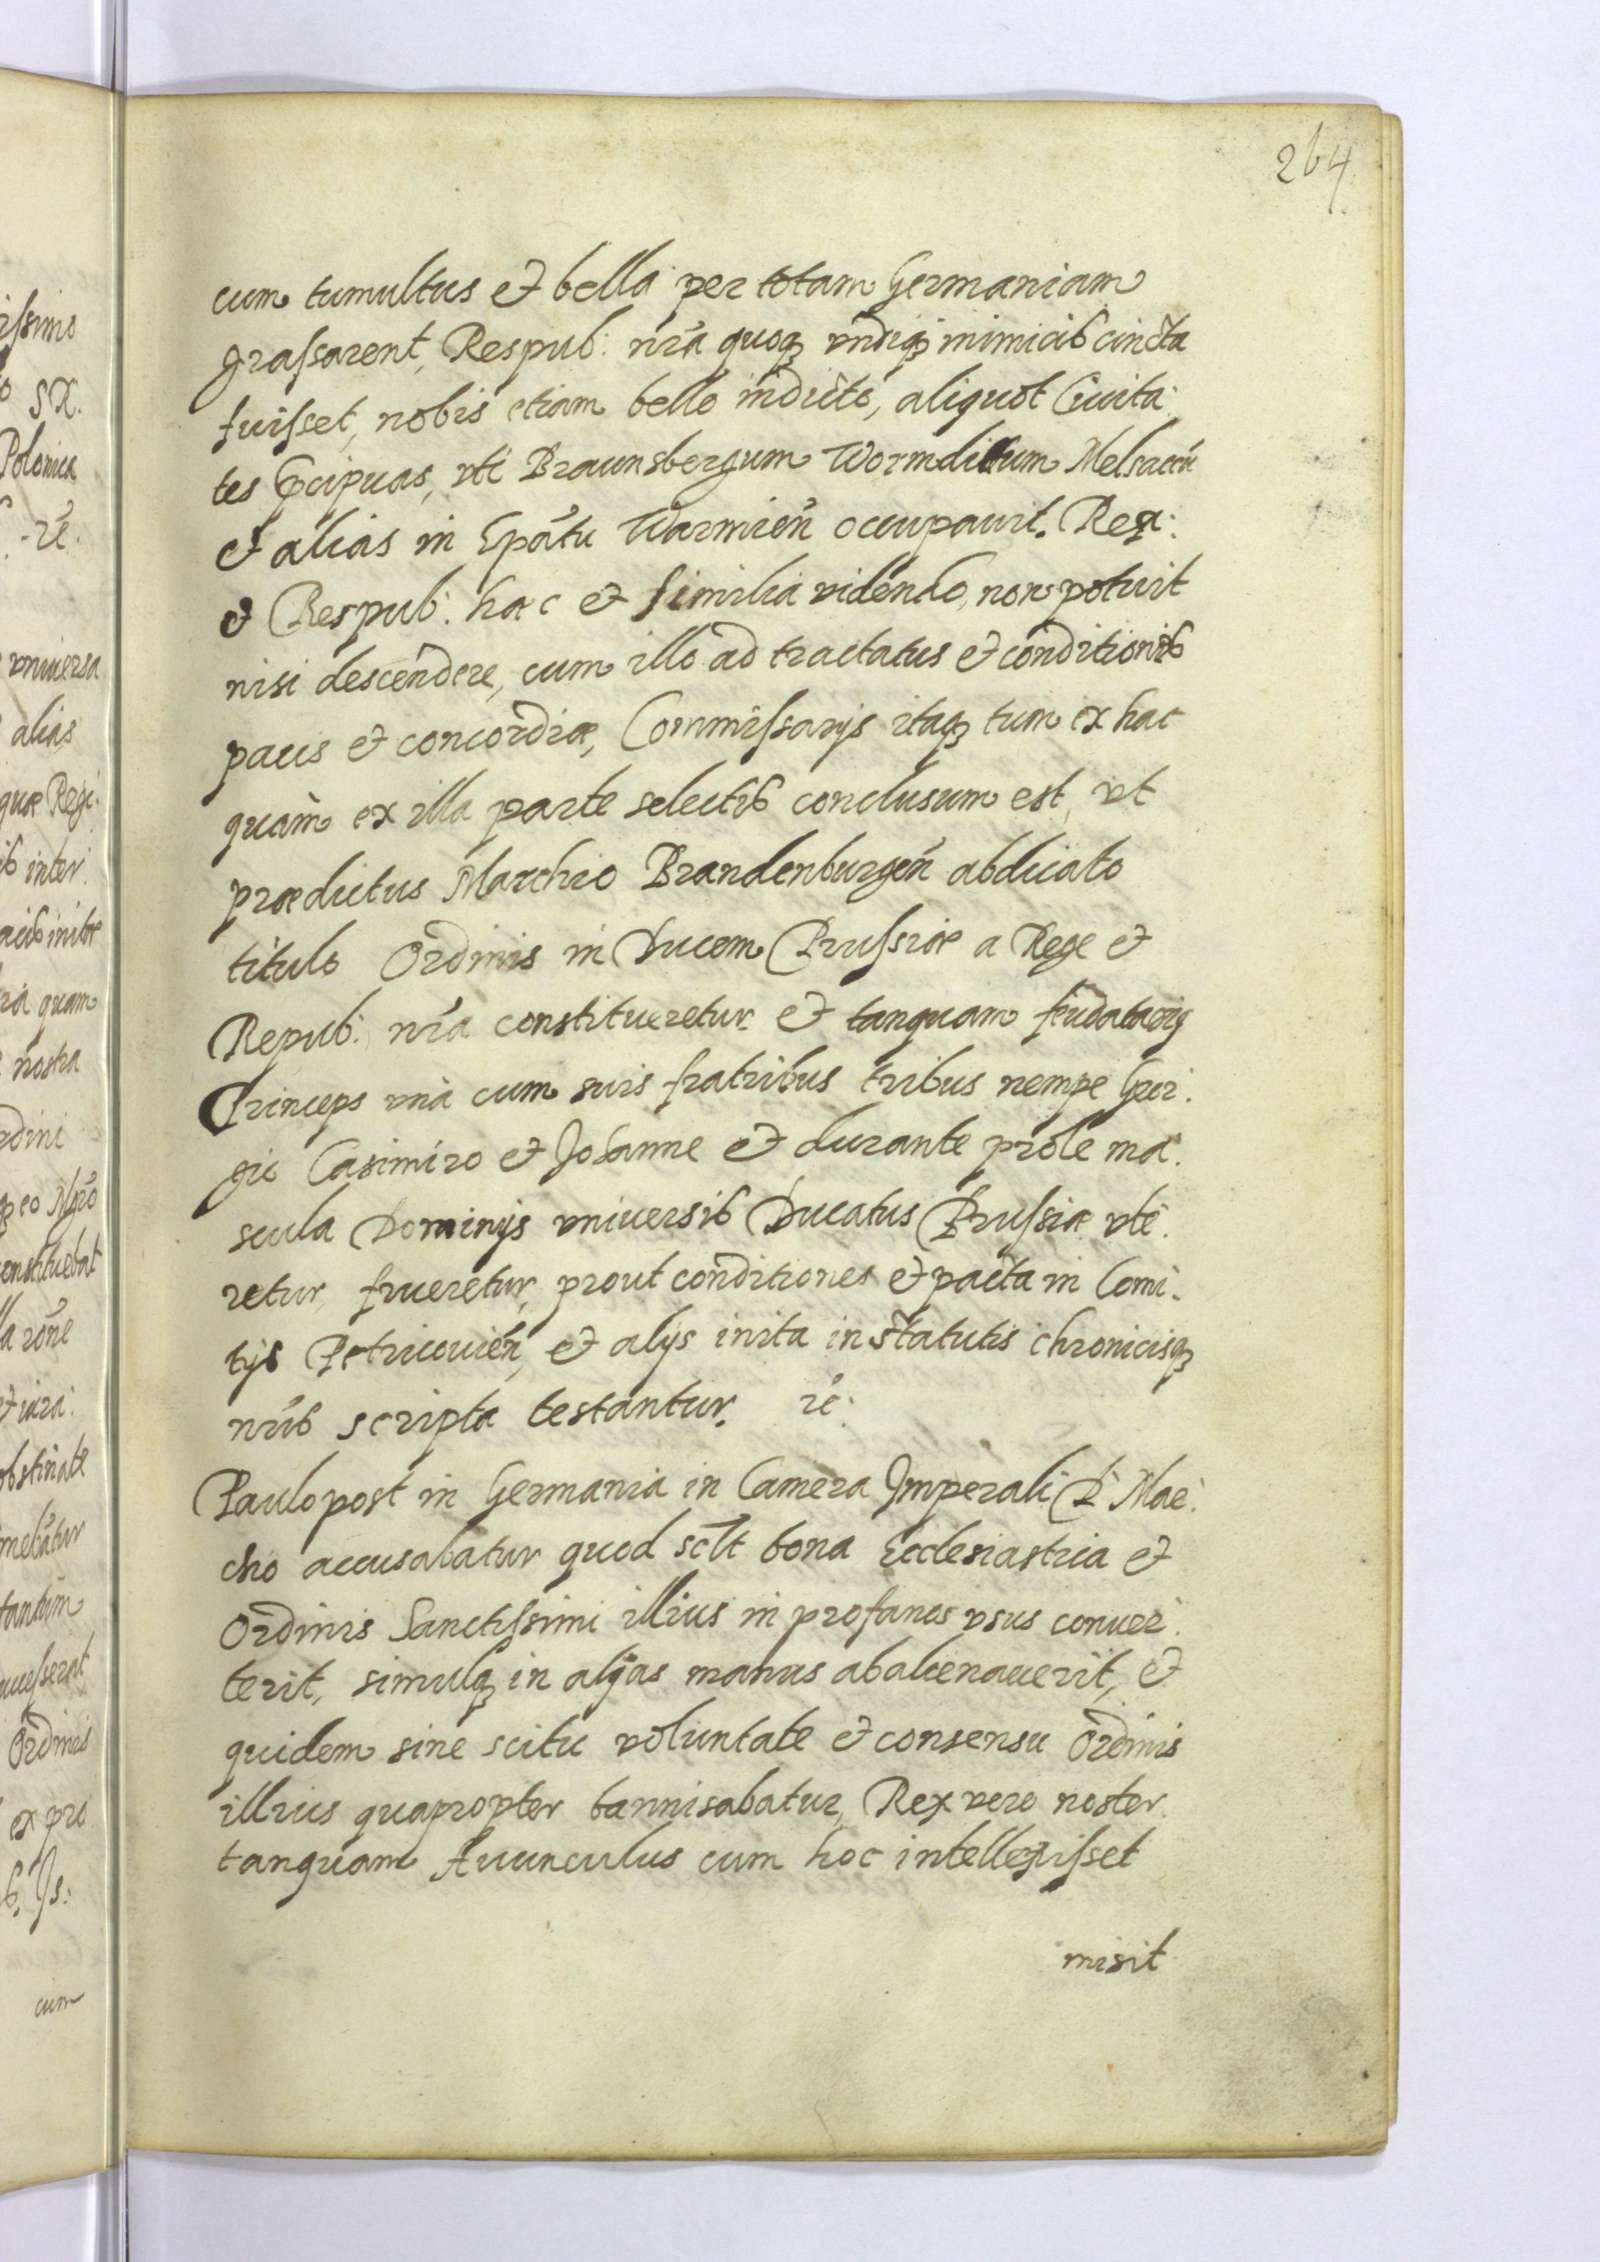 264
cum tumultus et bella per totam Germaniam
grassarent, Respub: nr̃a quoq₃ vndiq₃ inimicib cincta
fuisset, nobis etiam bello indicto, aliquot Ciuita:
tes p̃cipuas, vti Braunsbergum Wormditum Melsaccũ
et alias in Ep̃atu Warmieñ occupauit. Rex:
et Respub: hac et similia videndo, non potuit
nisi descendere, cum illo ad tractatus et conditionib
pacis et concordiæ, Commissarijs itaq₃ tum ex hac
quàm ex illa parte selectib conclusum est, vt
prædictus Marchio Brandenburgeñ abdicato
titulo Ordinis in Ducem Prussiæ a Rege et
Repub: nr̃a constitueretur et tanquam feudatarig
Princeps vnà cum suis fratribus tribus nempe Geor:
gie Casimiro et Johanne et durante prole ma:
scula Dominijs vniuersib Ducatus Prussiæ vte:
retur, frueretur, prout conditiones et pacta in Comi:
tijs Petricouieñ, et alijs inita in statutis chronicisq₃
nr̃ib scripta testantur. rc:
Paulo post in Germania in Camera Imperali D: Mar:
chio accusabatur quod sclt bona Ecclesiastica et
Ordinis Sanctissimi illius in profanos vsus conuer:
terit, simulq₃ in alijas manus abalienauerit, et
quidem sine scitu voluntate et consensu Ordinis
illius quapropter bannisabatur, Rex vero noster
tanquam Auunculus cum hoc intellexisset
misit